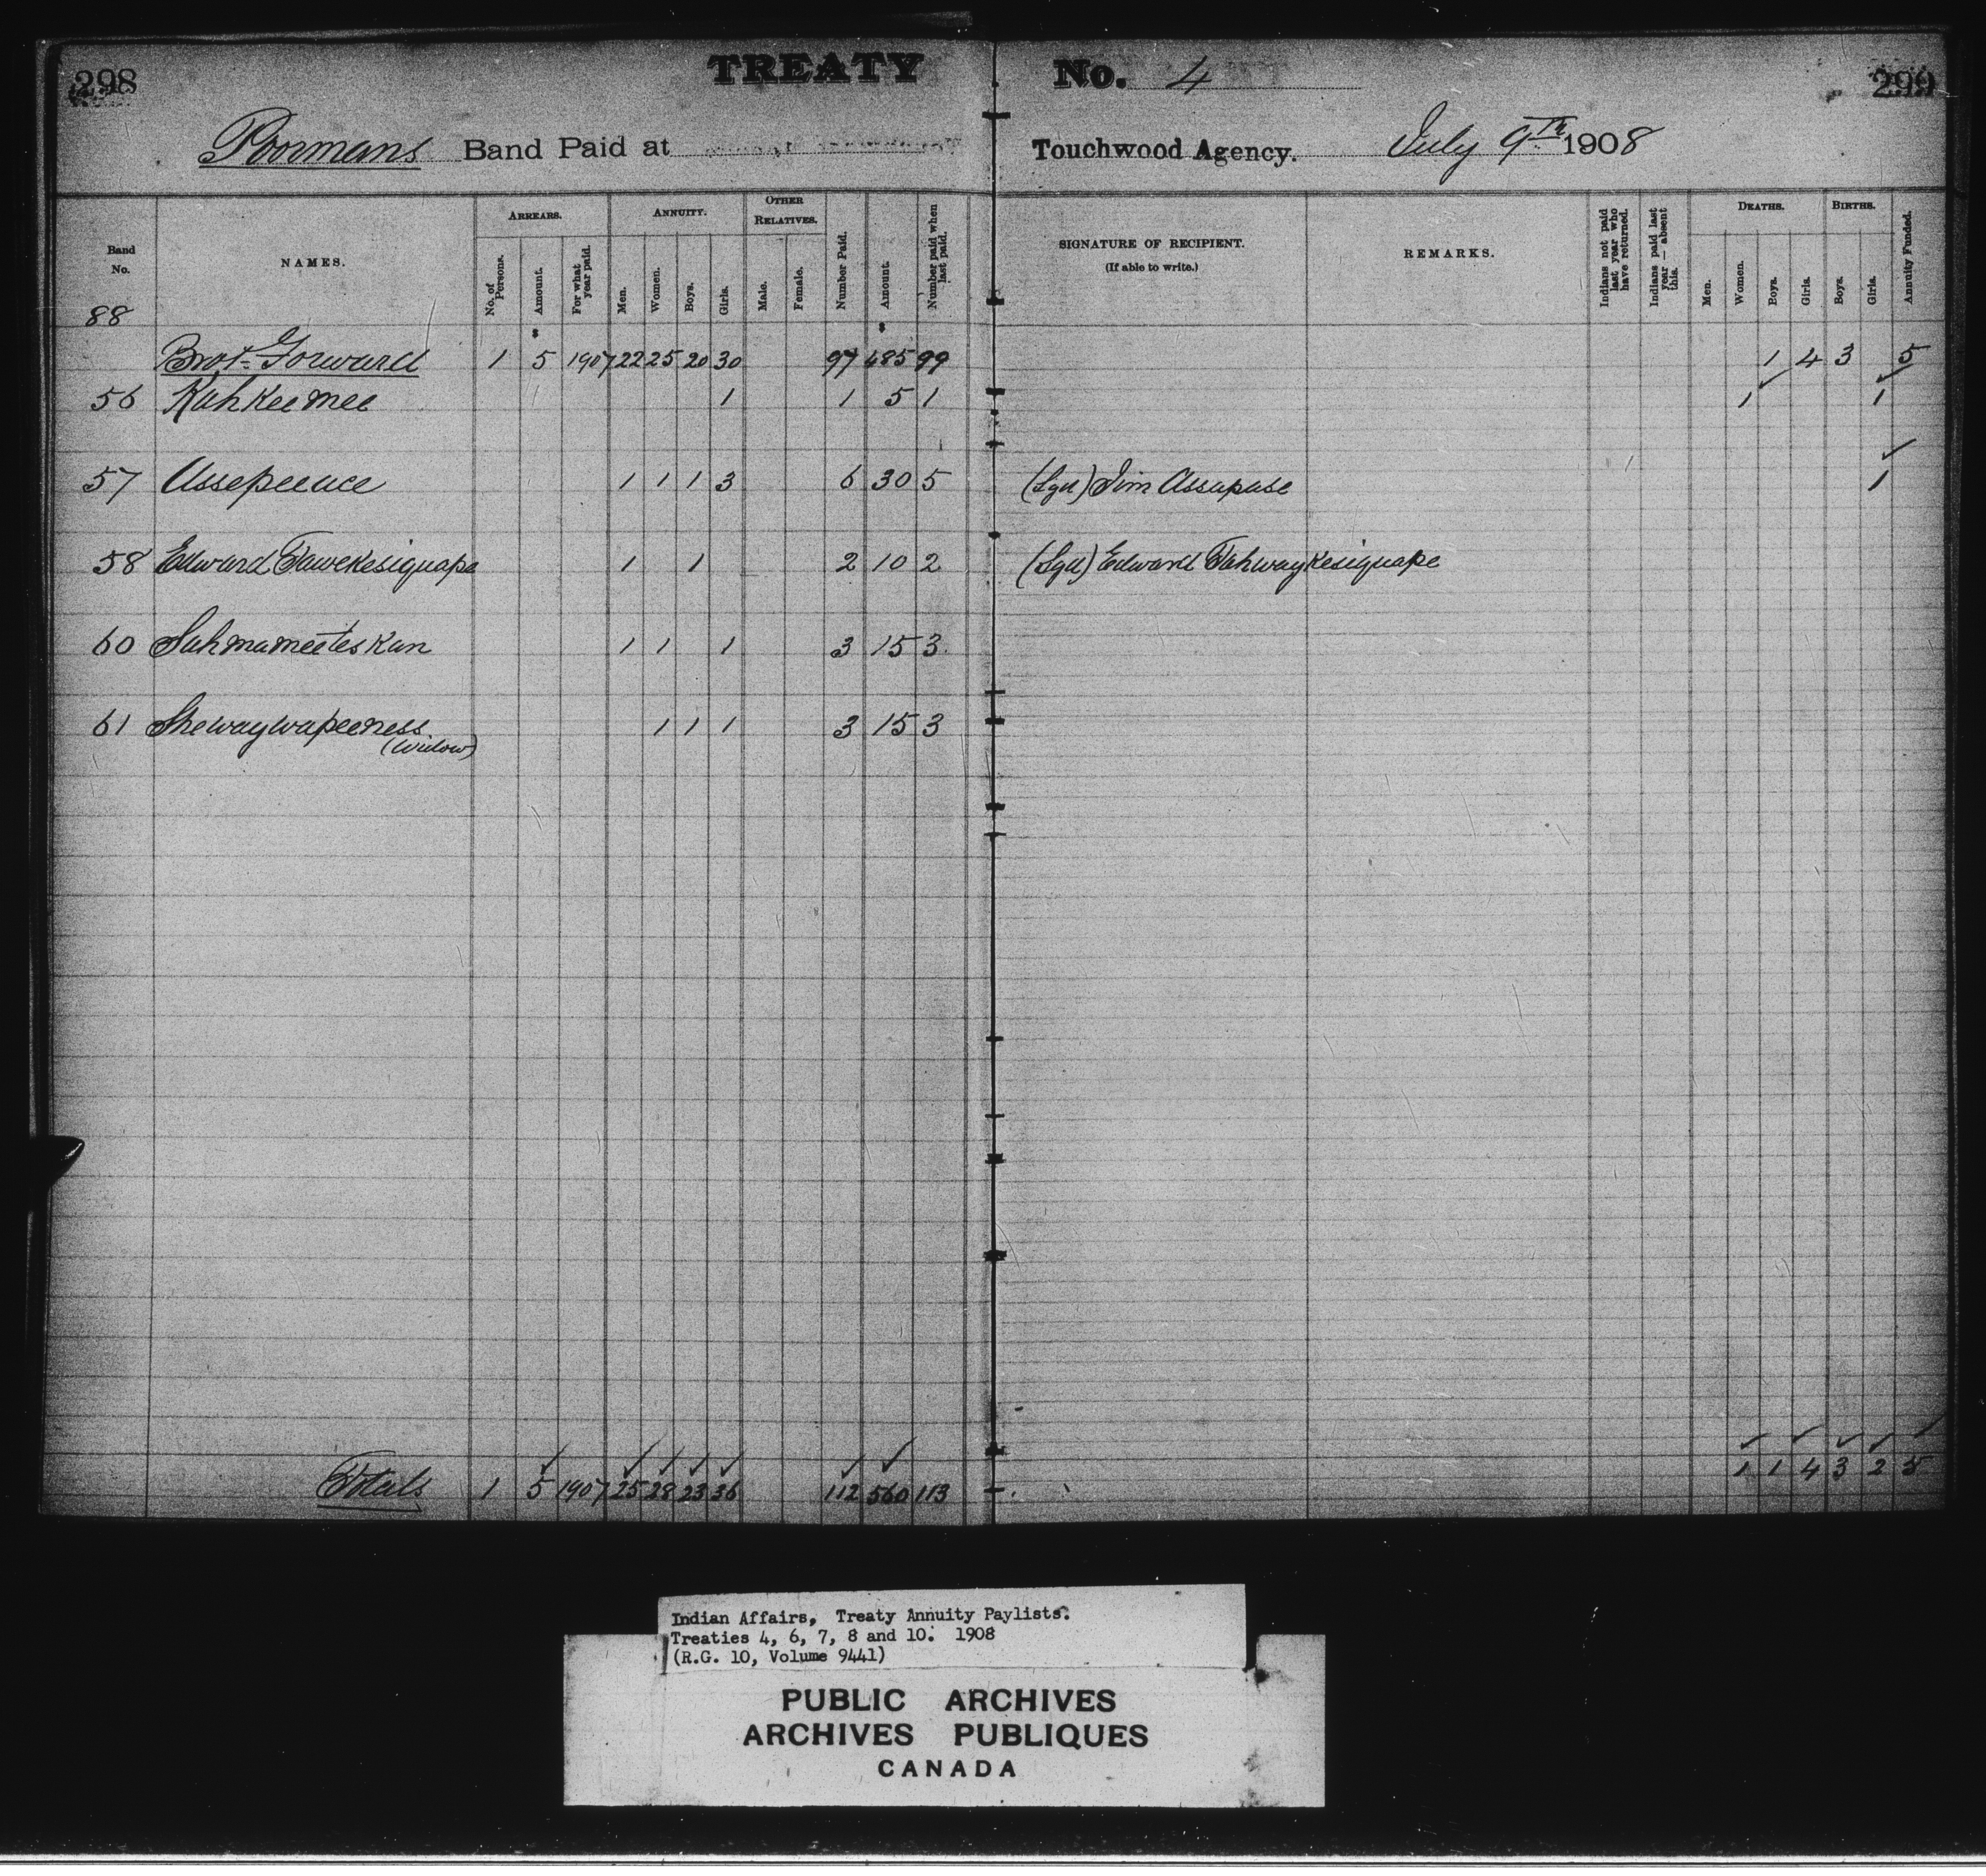 298 TREATY No. 4 299
Poormans Band Paid at Touchwood Agency. July 9th 1908
Band No.
NAMES.
ARREARS.
No. of Persons.
Amount.
For what year paid.
ANNUITY.
Men.
Women.
Boys.
Girls.
OTHER RELATIVES.
Male.
Female.
Number Paid.
Amount.
Number paid when last paid.
SIGNATURE OF RECIPIENT.
(If able to write.)
REMARKS.
Indians not paid last year who have returned.
Indians paid last year — absent this.
DEATHS.
Men.
Women.
Boys.
Girls.
BIRTHS.
Boys.
Girls.
Annuity Funded.
88
$ $
Brot. Forward 1 5 1907 22 25 20 30 97 485 99 1 4 3 5
56 Kahkeemee 1 1 5 1 1 1
57 Assepeeace 1 1 1 3 6 30 5 (Sgd) Jim Assapase 1
58 Edward Tawekesiquape 1 1 2 10 2 (Sgd) Edward Tahwaykesiquape
60 Sahmameeteskun 1 1 1 3 15 3
61 Shewaywapeeness 1 1 1 3 15 3
(Widow)
Totals 1 5 1907 25 28 23 36 112 560 113 1 1 4 3 2 5
Indian Affairs, Treaty Annuity Paylists.
Treaties 4, 6, 7, 8 and 10. 1908
(R.G. 10, Volume 9441)
PUBLIC ARCHIVES
ARCHIVES PUBLIQUES
CANADA